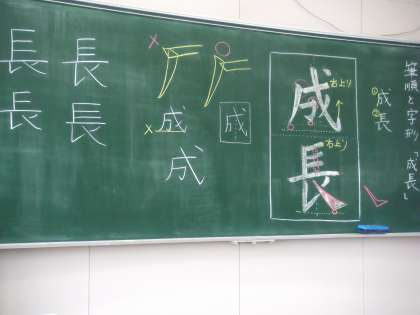 筆順と字形「成長」
①成
②長
成
右上り
長
右上り
成
成
成
長
長
長
長